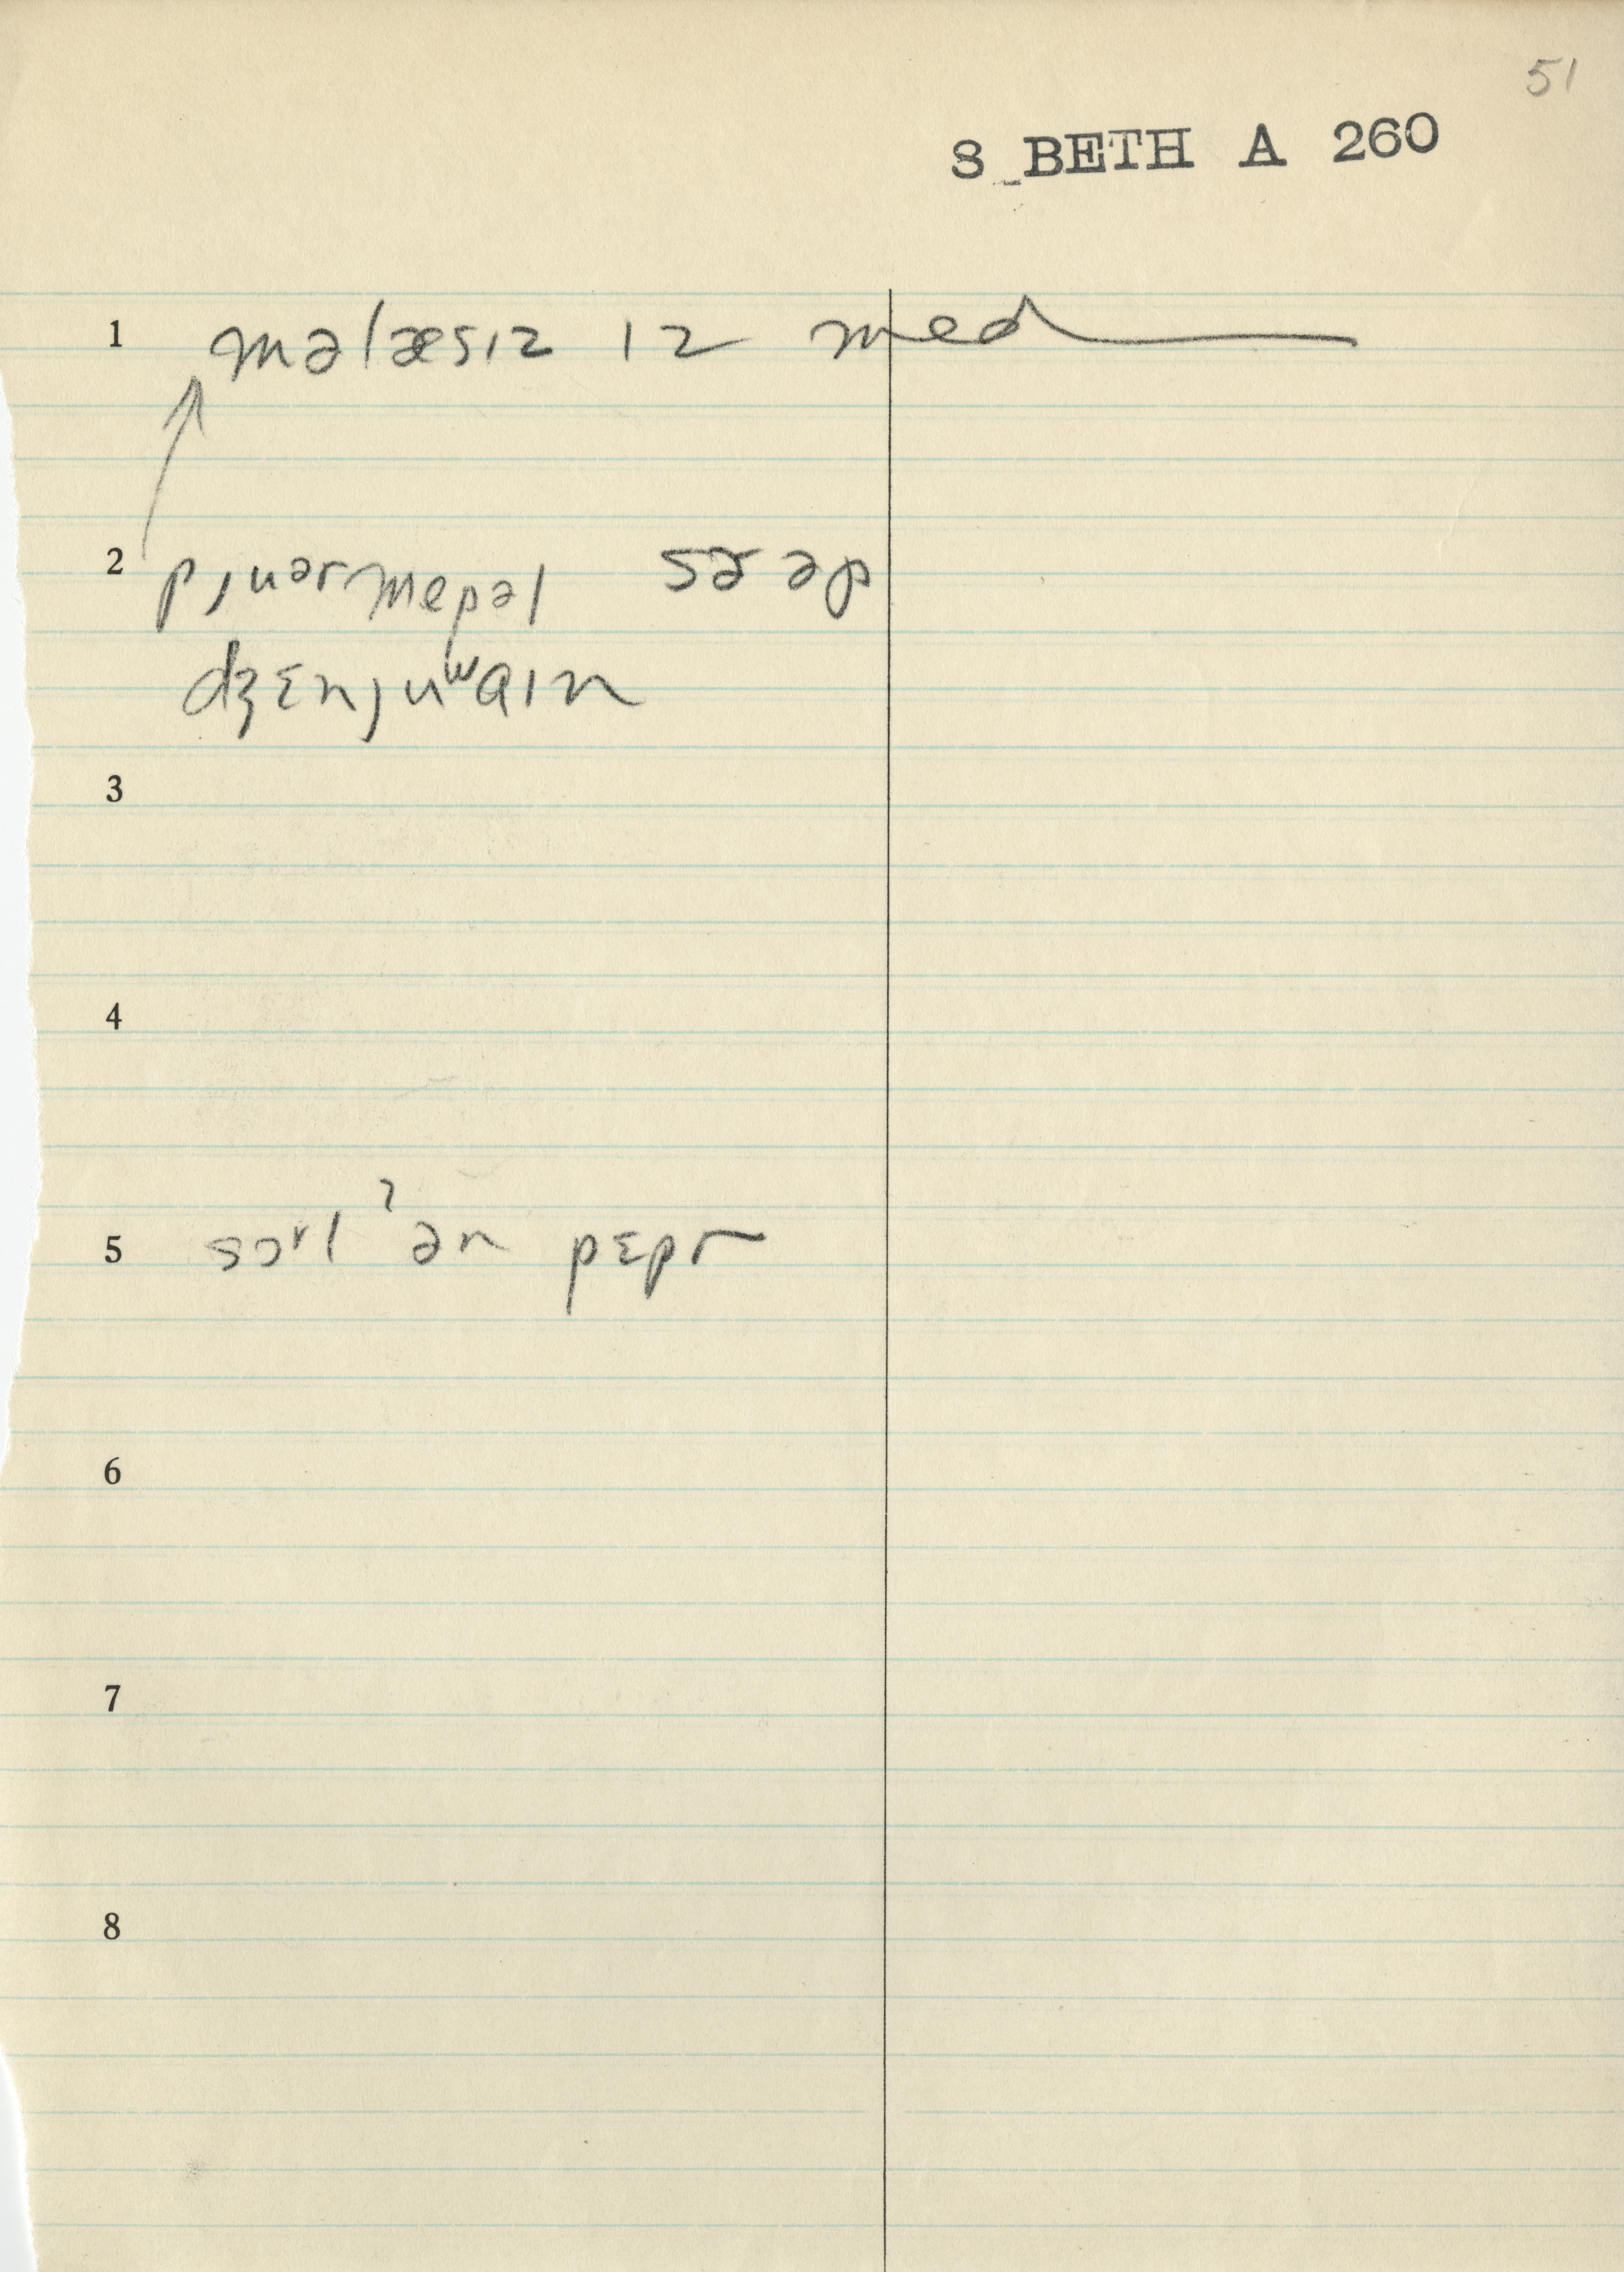 51
S BETH A 260
1 məlæsɪz ɪz med
2 pjuər mepəl sɚəp
dʒɛnjuʷaɪn
3
4
5 sɔrl ʔən pɛpr
6
7
8